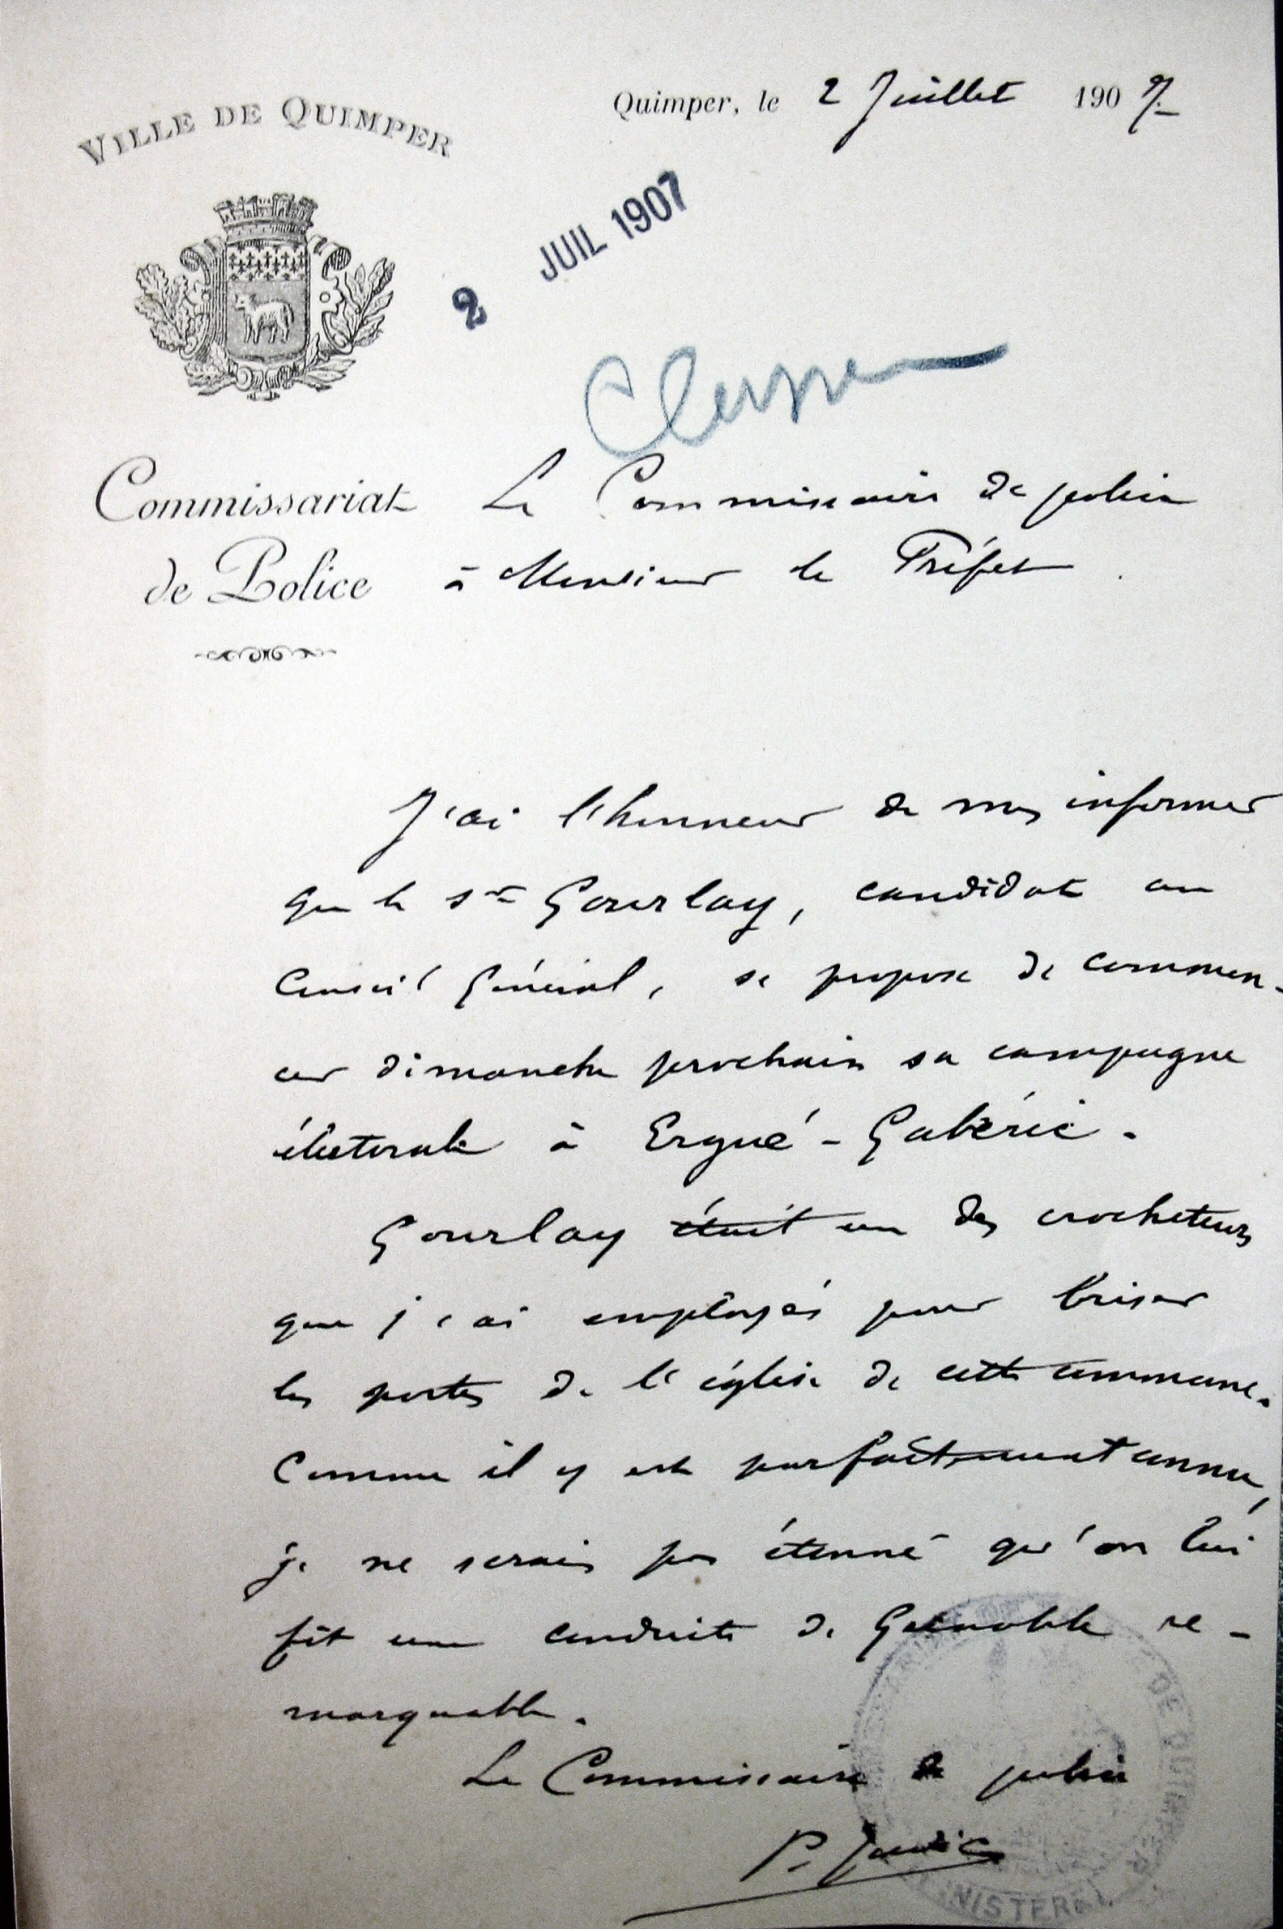 VILLE DE QUIMPER
Quimper, le 2 Juillet 1907
2 JUIL 1907
Classer
Commissariat
de Police
Le Commissaire de police
à Monsieur le Préfet
J'ai l'honneur de vous informer
que le sr Gourlay, candidat au
Conseil Général, se propose de commen-
cer dimanche prochain sa campagne
électorale à Ergué-Gabéric.
Gourlay était un des crocheteurs
que j'ai employés pour briser
les portes de l'église de cette commune.
Comme il y est parfaitement connu,
je ne serais pas étonné qu'on lui
fît une conduite de Grenoble re-
marquable.
Le Commissaire de police
P.
DE QUIMPER